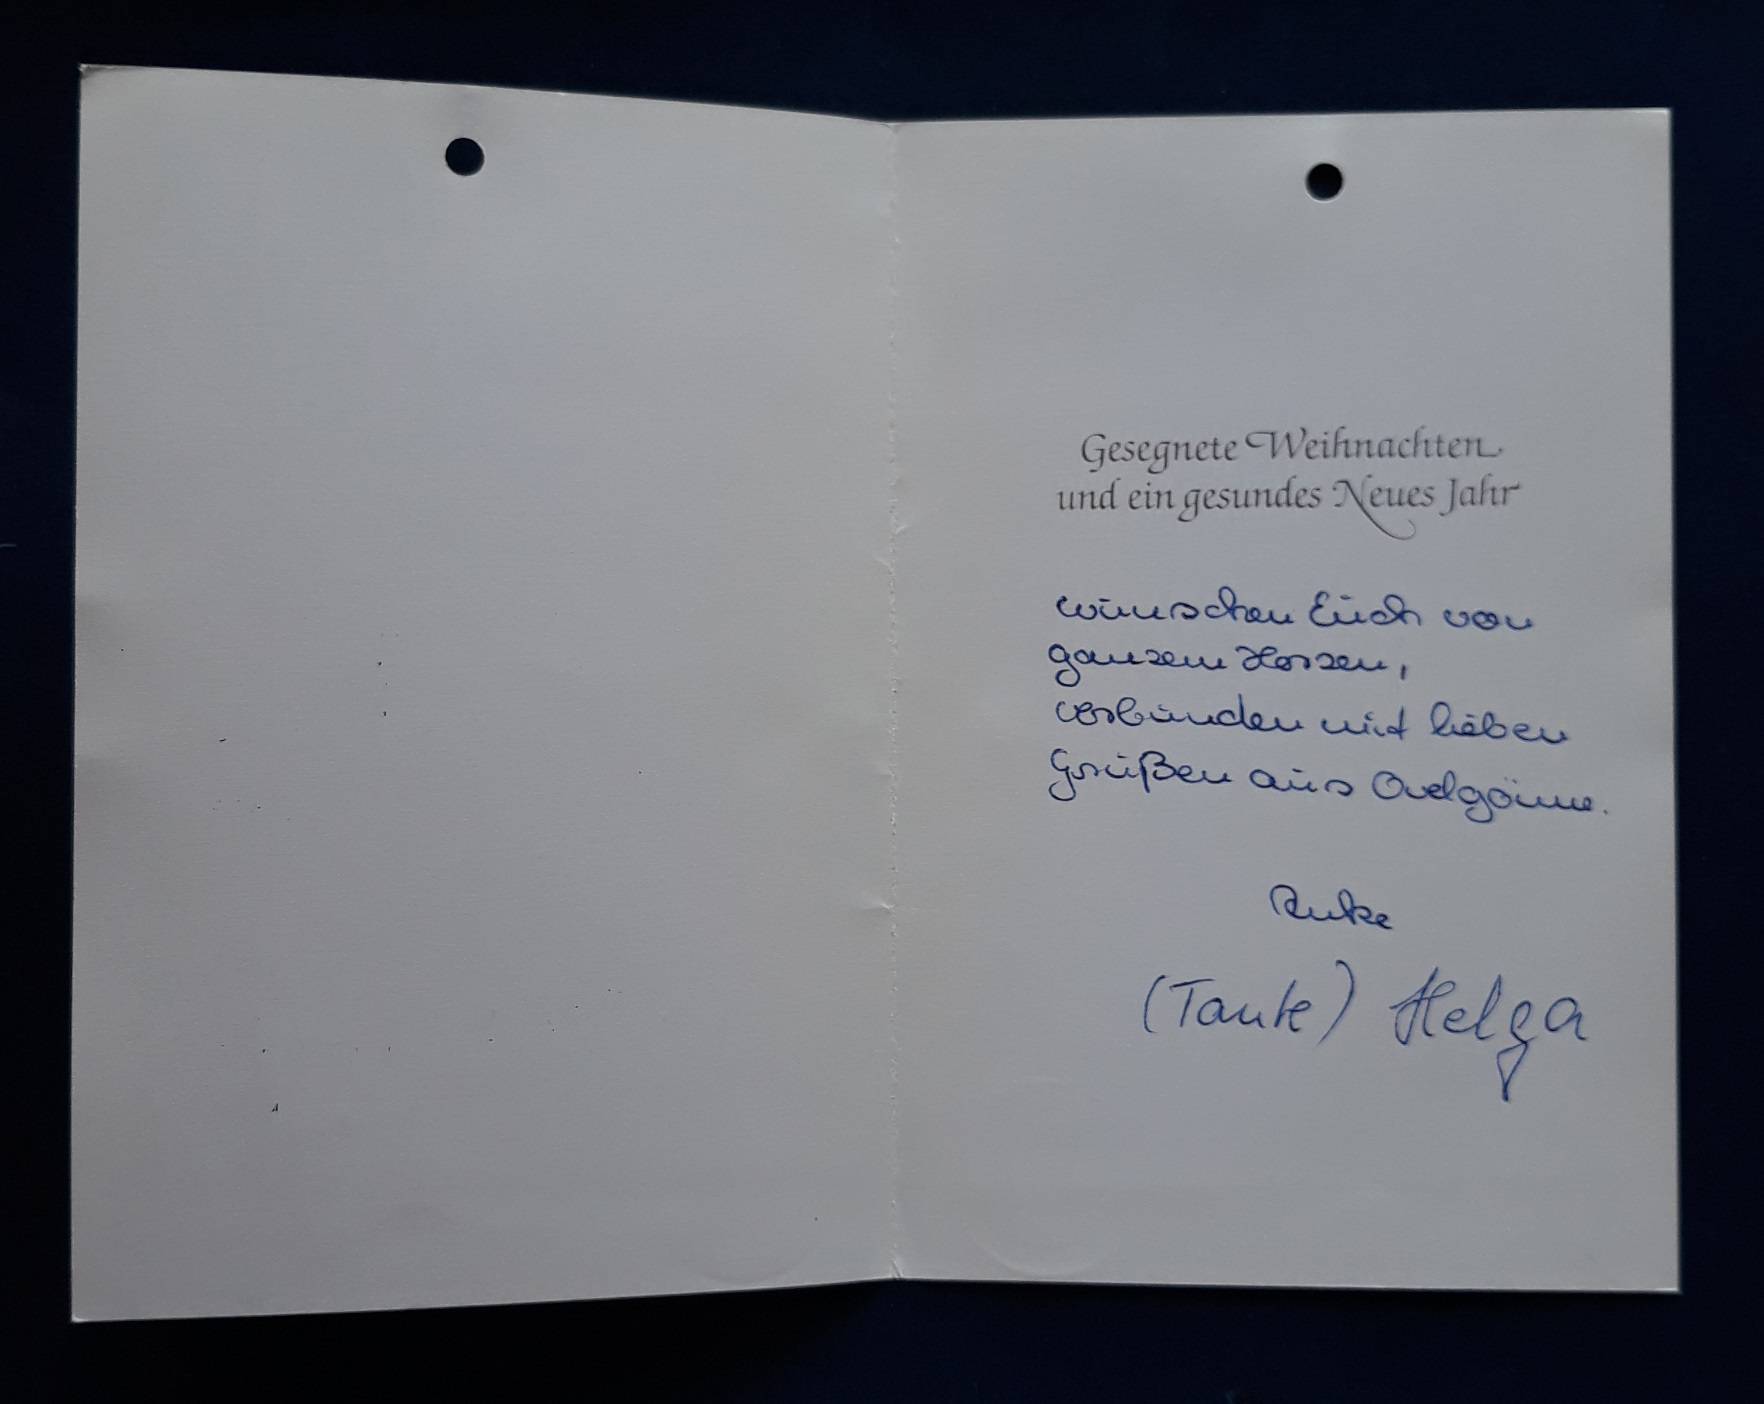 Gesegnete Weihnachten
und ein gesundes Neues Jahr
wünschen Euch von
ganzem Herzen,
verbunden mit lieben
Grüßen aus Ovelgönne.
Anke
(Tante) Helga